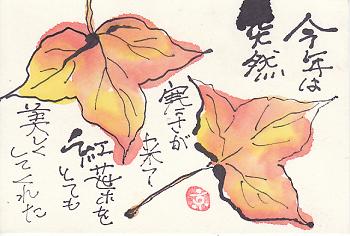 今年は
突然
寒さが
来て
紅葉を
とても
美しく
してくれた